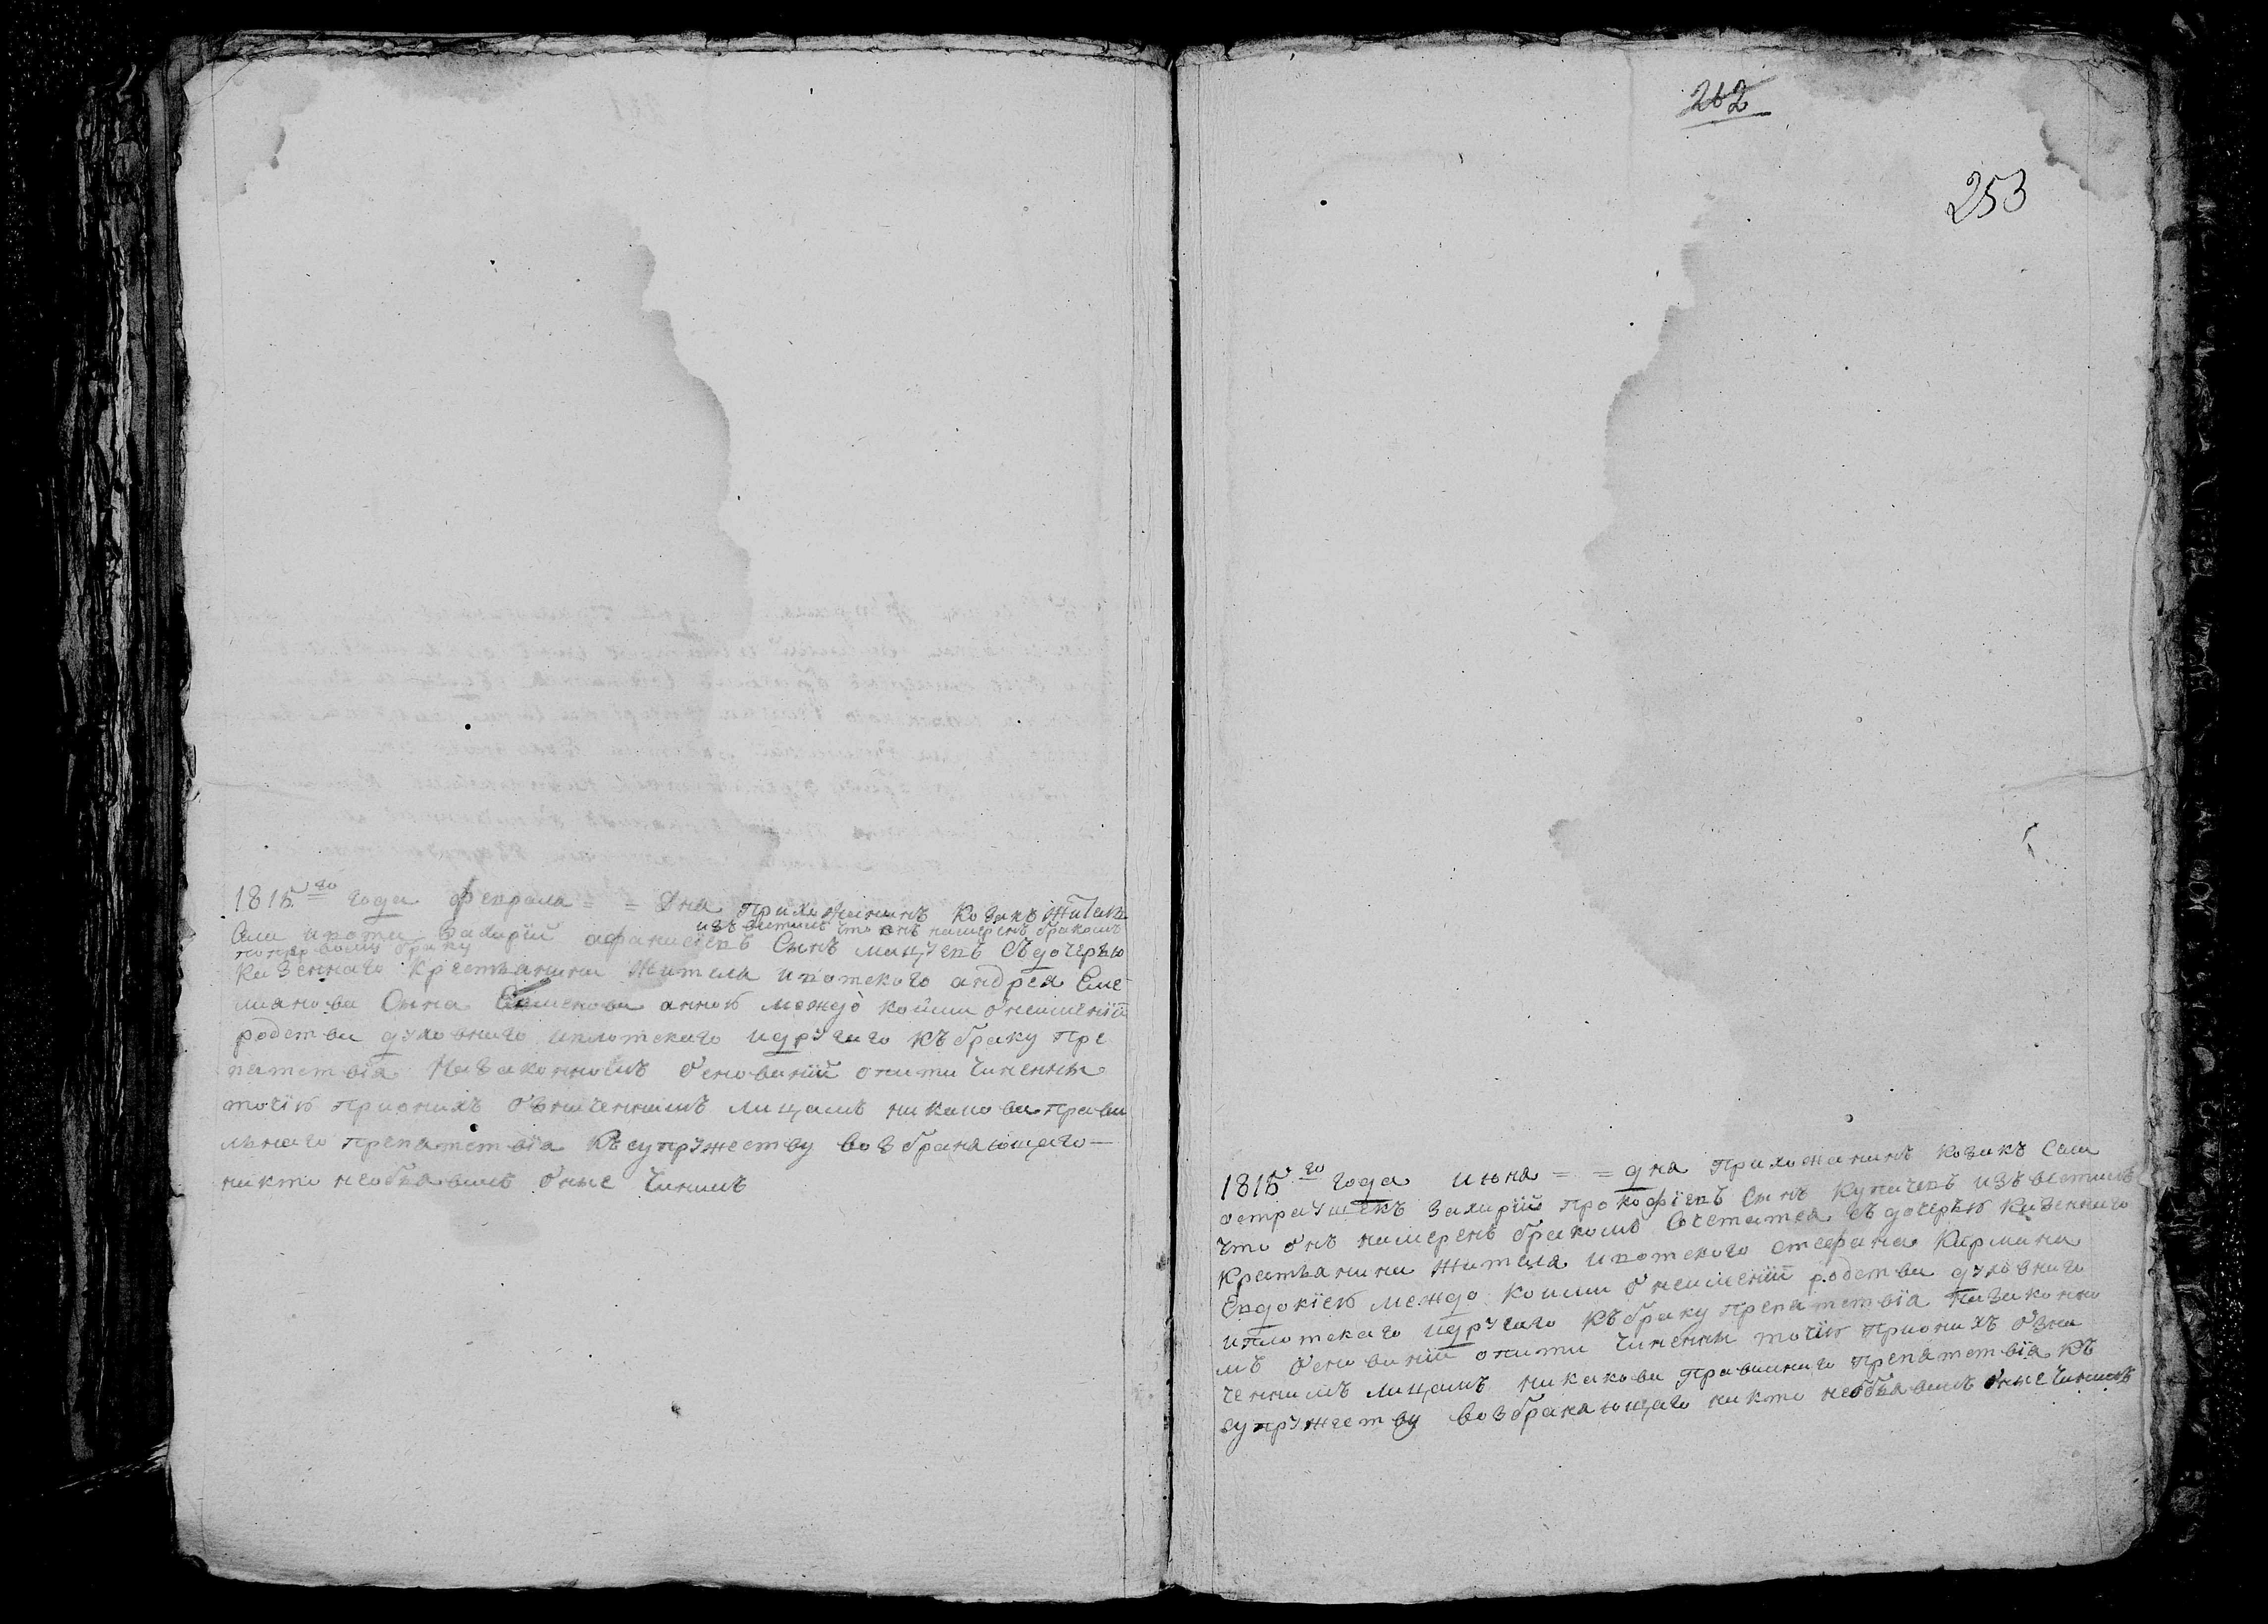 1815го года февраля = = дня прихожанинъ козакъ житель
села ипоти Захарій афанасіевъ Сынъ мацуевъ Съдочерью
извѣстилъ что онъ намеренъ бракомъ
по первому браку
Казеннаго крестьянина жителя ипотского андрея Еме-
лианова Сына анною междо коими онеимѣніи
родства духовнаго иплотскаго идругаго къбраку Пре
пятствія Назаконномъ основаніи опити Чиненны
точію прионихъ означеннымъ лицамъ никакова прави
льнаго препятствія Ксупружеству возбраняющаго —
никто необъявилъ оные Чинилъ
262
253
1815го года июня = = дня прихожанинъ козакъ села
Захарій прокофіевъ Сынъ Купичевъ извѣстилъ
что онъ намеренъ бракомъ Сочетатся съдочерью Казеннаго
Крестьянина жителя ипотского стефана Кирмана
Евдокіею междо коими онеимѣніи родства духовнаго
иплотскаго идругаго къбраку препятствія назаконно
мъ основаніи опити Чиненны точію прионихъ озна
ченнымъ лицамъ никакова правилнаго препятствія къ
супружеству возбраняющаго никто необъявилъ оные Чинилъ